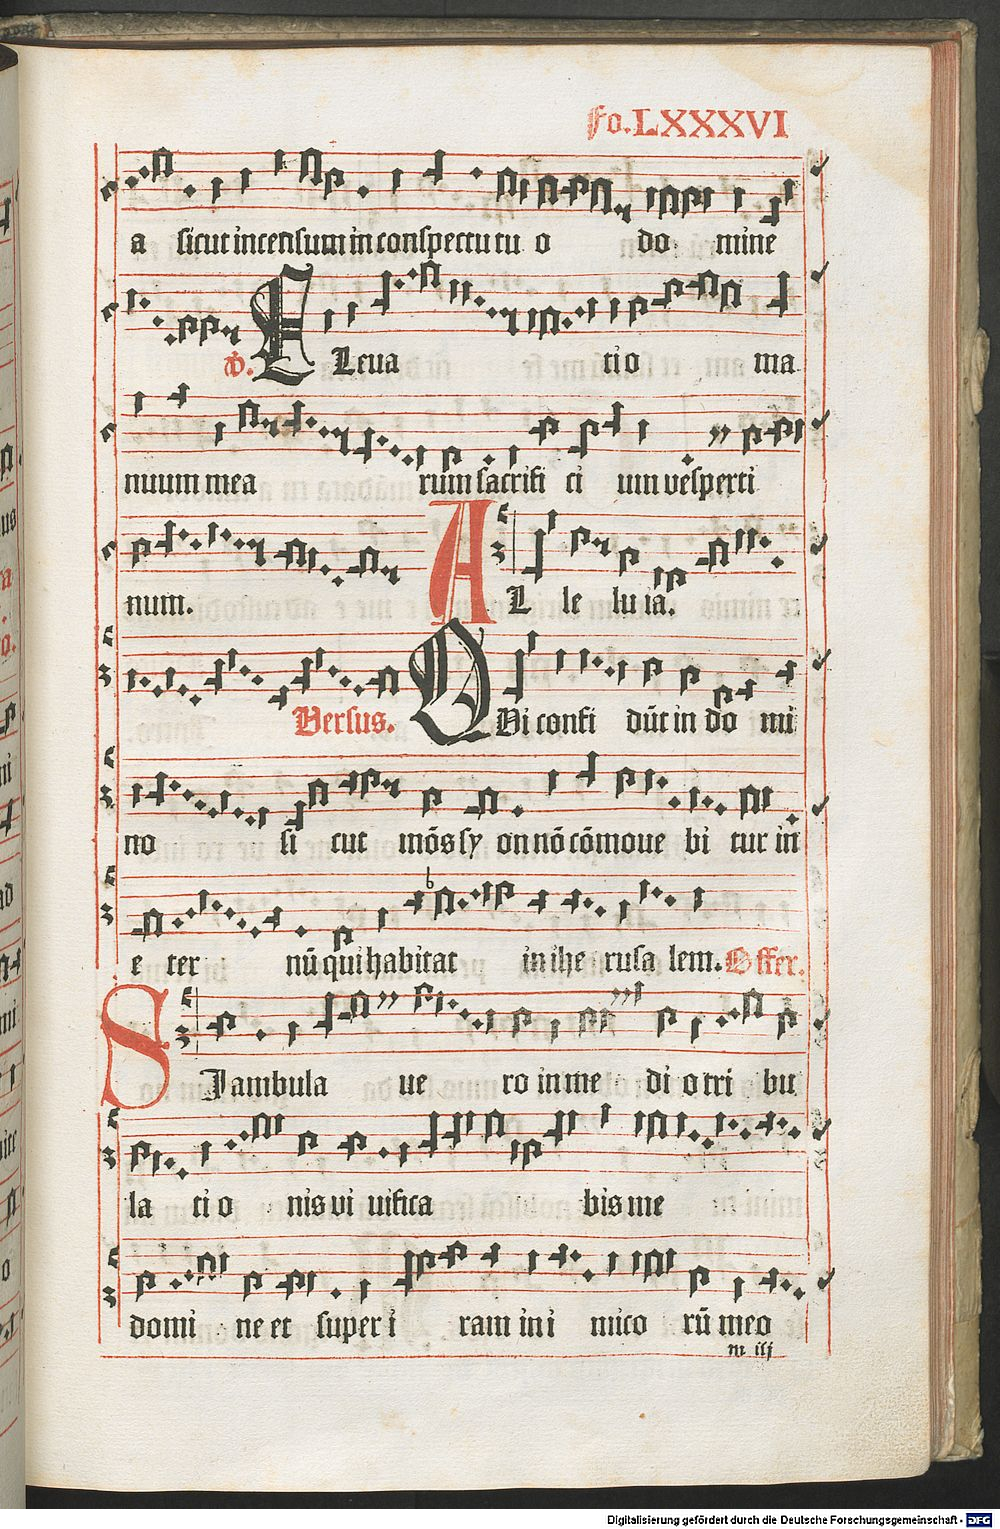 Fo.LXXXVI
a sicut incensum in conspectu tu o do mine
℣. E Leua tio ma
nuum mea rum sacrifi ci um vesperti
num. A L le lu ia.
Versus. Q Ui confi dūt in do mi
no si cut mōs sy on nō cōmoue bi tur in
e ter nū qui habitat in ihe rusa lem. Offer.
S I ambula ue ro in me di o tri bu
la ti o nis vi uifica bis me
domi ne et super i ram in i mico rū meo
m iij
Digitalisierung gefördert durch die Deutsche Forschungsgemeinschaft - DFG